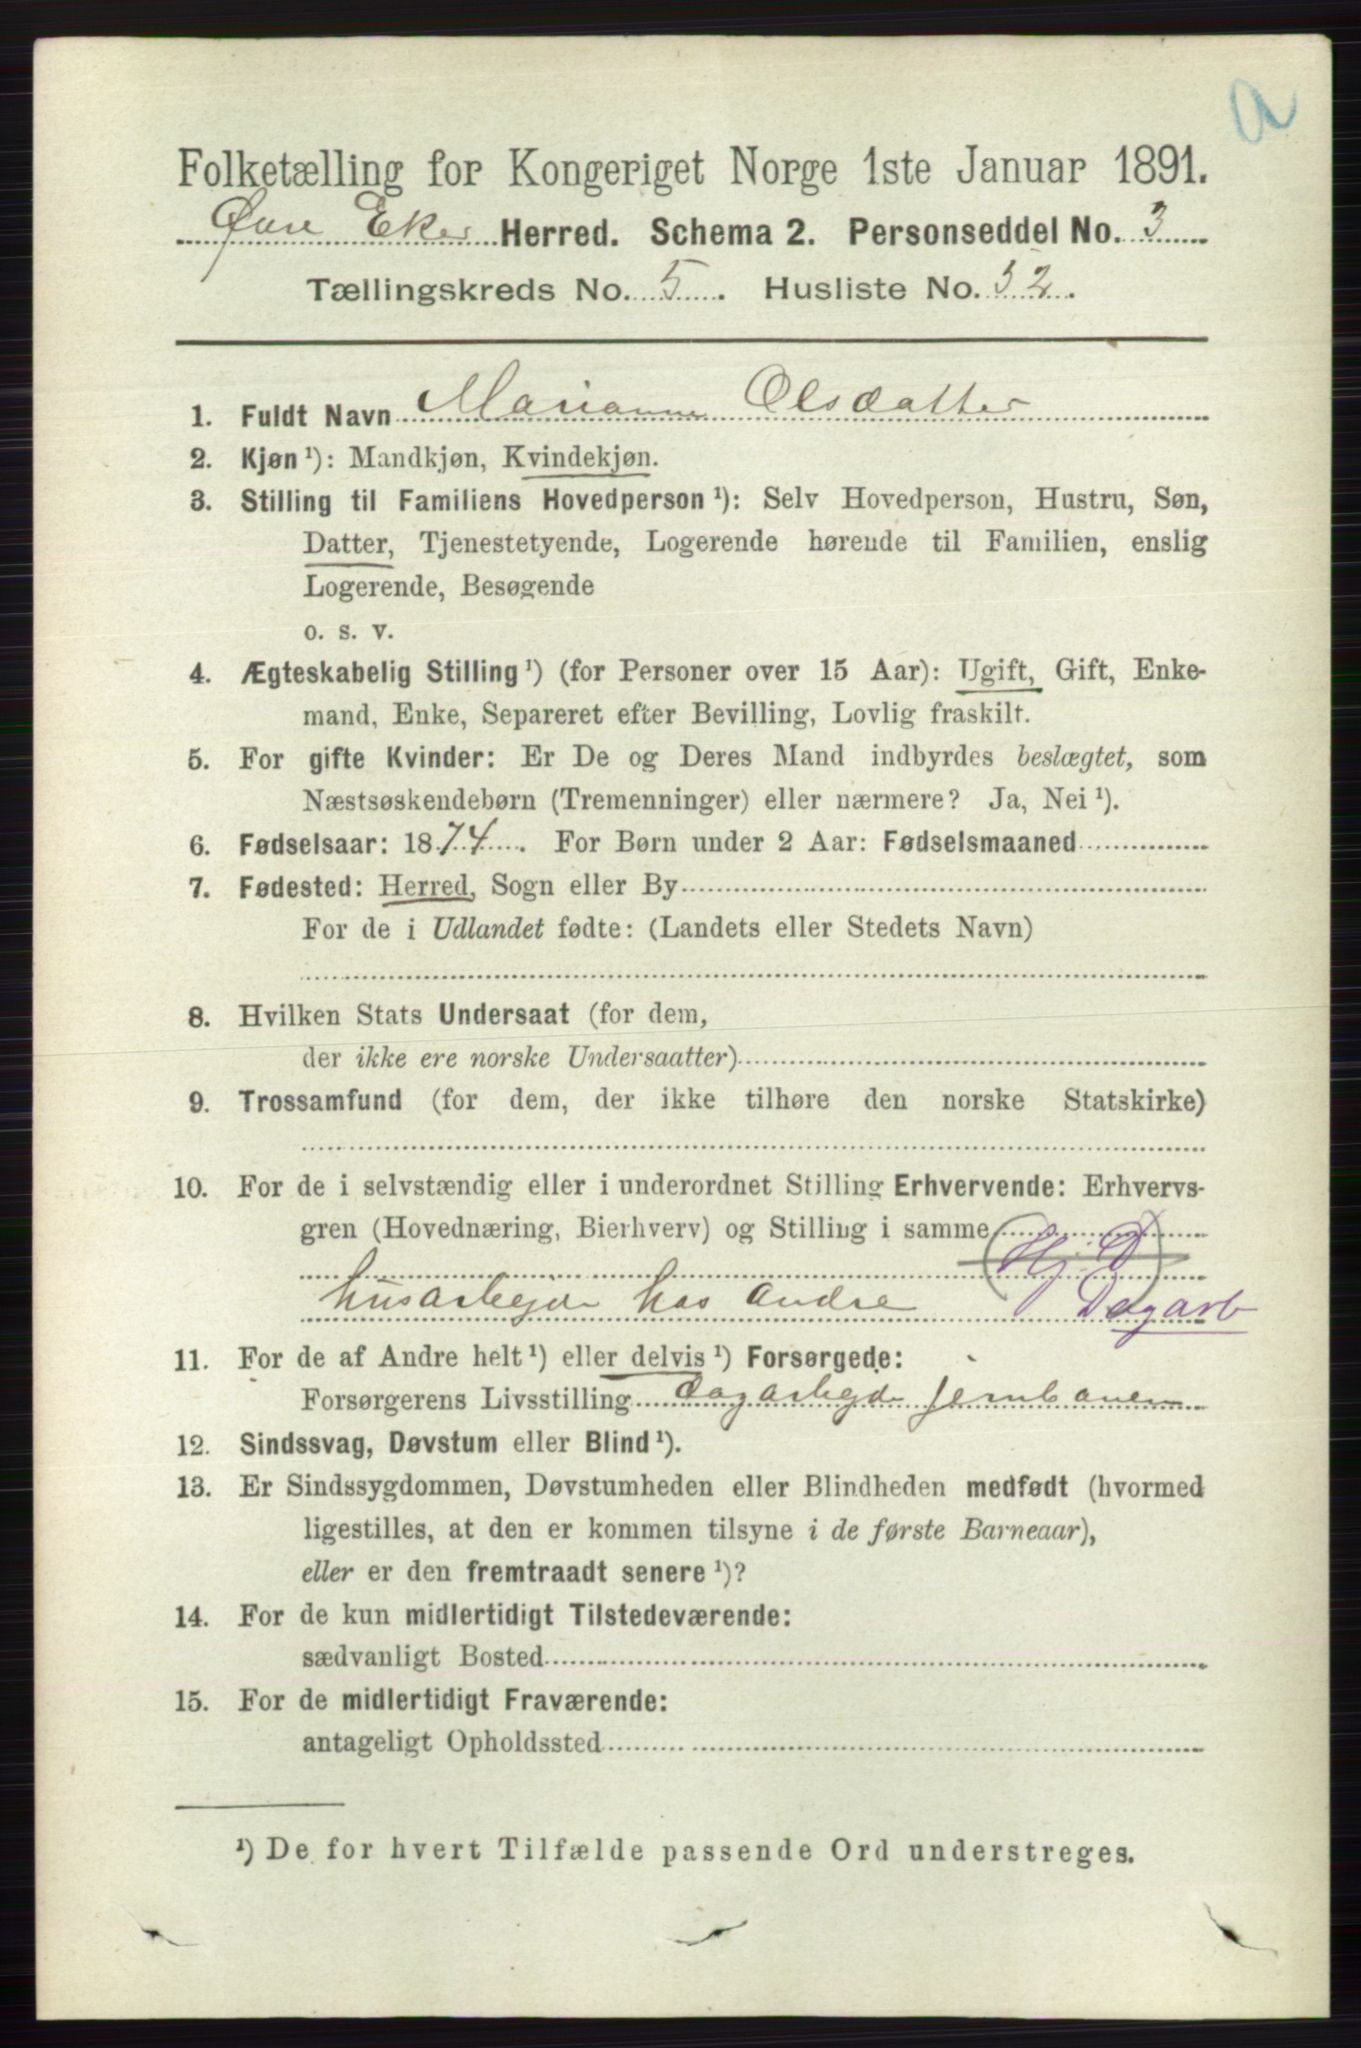 a
Folketælling for Kongeriget Norge 1ste Januar 1891.
Øvre Eker Herred. Schema 2. Personseddel No. 3
Tællingskreds No. 5. Husliste No. 32.
1. Fuldt Navn Marianne Olsdatter
2. Kjøn ¹): Mandkjøn, Kvindekjøn.
3. Stilling til Familiens Hovedperson ¹): Selv Hovedperson, Hustru, Søn,
Datter, Tjenestetyende, Logerende hørende til Familien, enslig
Logerende, Besøgende
o. s. v.
4. Ægteskabelig Stilling ¹) (for Personer over 15 Aar): Ugift, Gift, Enke-
mand, Enke, Separeret efter Bevilling, Lovlig fraskilt.
5. For gifte Kvinder: Er De og Deres Mand indbyrdes beslægtet, som
Næstsøskendebørn (Tremenninger) eller nærmere? Ja, Nei ¹).
6. Fødselsaar: 1874. For Børn under 2 Aar: Fødselsmaaned
7. Fødested: Herred, Sogn eller By
For de i Udlandet fødte: (Landets eller Stedets Navn)
8. Hvilken Stats Undersaat (for dem,
der ikke ere norske Undersaatter)
9. Trossamfund (for dem, der ikke tilhøre den norske Statskirke)
10. For de i selvstændig eller i underordnet Stilling Erhvervende: Erhvervs-
gren (Hovednæring, Bierhverv) og Stilling i samme (Hj. D)
husarbeide hos andre Dagarb
11. For de af Andre helt ¹) eller delvis ¹) Forsørgede:
Forsørgerens Livsstilling dagarbeyde jernbanen
12. Sindssvag, Døvstum eller Blind ¹).
13. Er Sindssygdommen, Døvstumheden eller Blindheden medfødt (hvormed
ligestilles, at den er kommen tilsyne i de første Barneaar),
eller er den fremtraadt senere ¹)?
14. For de kun midlertidigt Tilstedeværende:
sædvanligt Bosted
15. For de midlertidigt Fraværende:
antageligt Opholdssted
¹) De for hvert Tilfælde passende Ord understreges.